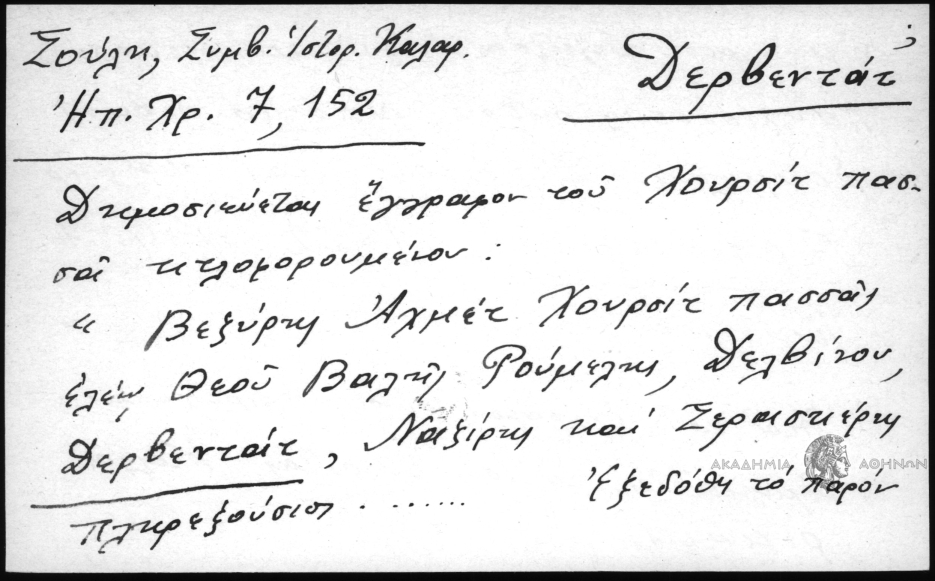 Σούλη, Συμβ. Ἱστορ. Καλαρ.
Ἠπ. Χρ. 7, 152
Δερβεντάτ
Δημοσιεύεται ἔγγραφον τοῦ Χουρσίτ πασ-
σᾶ τιτλοφορουμένου:
“ Βεζύρης Ἀχμέτ Χουρσίτ πασσᾶς
ἐλέῳ Θεοῦ Βαλῆς Ρούμελης, Δελβίνου,
Δερβεντάτ, Ναζίρης καί Σερασκέρης
ΑΚΑΔΗΜΙΑ ΑΘΗΝΩΝ
πληρεξούσιος ....... Ἐξεδόθη τό παρόν